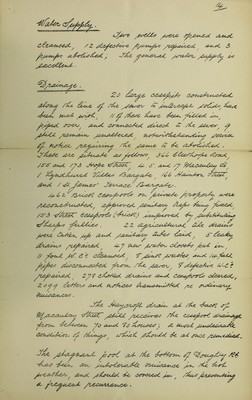 14
Water Supply.
Two wells were opened and
cleansed, 12 defective pumps repaired, and 3
pumps abolished; The general water supply is
excellent.
Drainage.
20 large cesspits constructed
along the line of the sewer to intercept solids, have
been met with, 11 of these have been filled in,
piped over, and connected direct to the sewer, 9
still remain unaltered notwithstanding service
of notice requiring the same to be abolished.
These are situate as follows, 366 Cleethorpe Road,
158 and 173 Hope Street, 15 and 17
1 Lyndhurst Villas Bargate, 166 Hainton Street,
and 1 St James' Terrace Bargate.
462 Brick cesspools on private property were
reconstructed, approved sanitary traps being fixed
153 Street cesspools (brick) improved by substituting
22 Agricultural tile drains
were taken up and sanitary tubes laid, 5 leaky
drains repaired, 47 new water closets put in,
11 foul W.Cs cleansed, 8 sink wastes and water
pipes disconnected from the sewer, 8 defective W.Cs
repaired, 278 choked drains and cesspools cleared,
2099 letters and notices transmitted re ordinary
nuisances.
The Haycroft drain at the back of
Macaulay Street still receives the cesspool drainage
from between 70 and 80 houses; a most undesirable
condition of things, which should be at once remedied.
The stagnant pool at the bottom of Doughty Rd
has been an intolerable nuisance in the hot
weather, and should be covered in, thus preventing
a frequent recurrence.